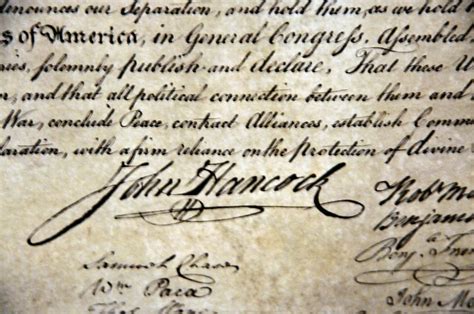 nounces our Separation, and hold them, as we hold
s of America, in General Congress, Assembled
ies, solemnly publish and declare, That these U
or, and that all political connection between them and
War, conclude Peace, contract Alliances, establish Comm
laration, with a firm reliance on the protection of divine
John Hancock
Rob M
Benjam
Samuel Chase
Benj. Fra
Wm Paca
John Mo
Thos